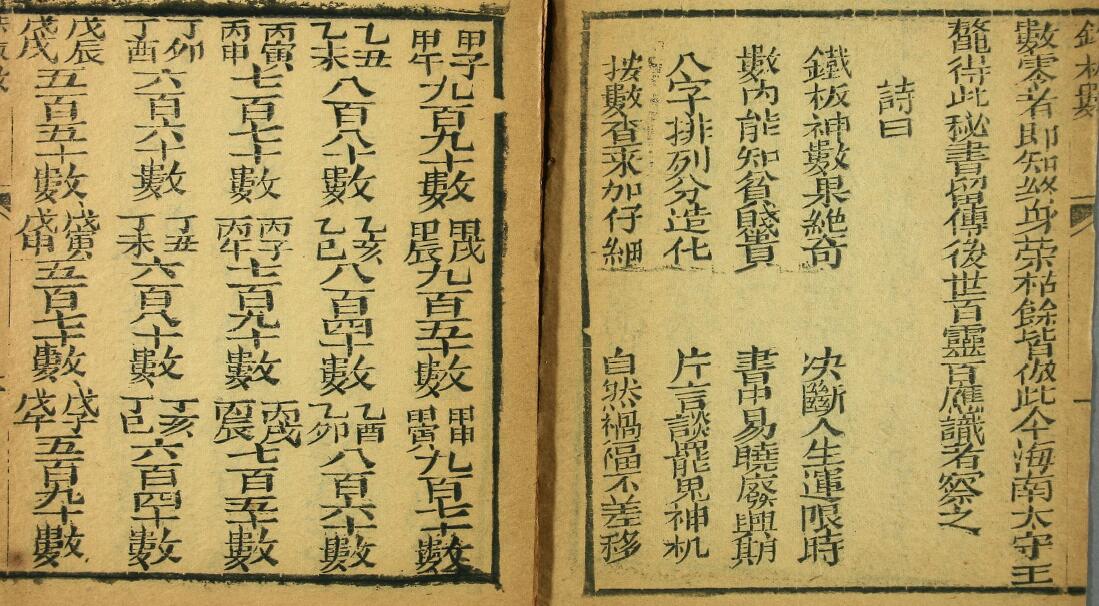 數零者即知終身荣枯餘皆倣此今海南太守王
氂得此秘書畱傳後世百靈百應識者察之
詩曰
鐵板神數果絶奇 决斷人生運限時
數內能知貧賤貴 書中易曉廢興期
八字排列分造化 片言談罷鬼神机
按數查来加仔細 自然禍福不差移
甲子甲午九百九十數 甲戌甲辰九百五十數 甲申甲寅九百七十數
乙丑乙未八百八十數 乙亥乙巳八百四十數 乙酉乙卯八百六十數
丙寅丙申七百七十數 丙子丙午七百九十數 丙戌丙辰七百五十數
丁卯丁酉六百六十數 丁丑丁未六百八十數 丁亥丁巳六百四十數
戊辰戊戌五百五十數 戊寅戊申五百七十數 戊子戊午五百九十數